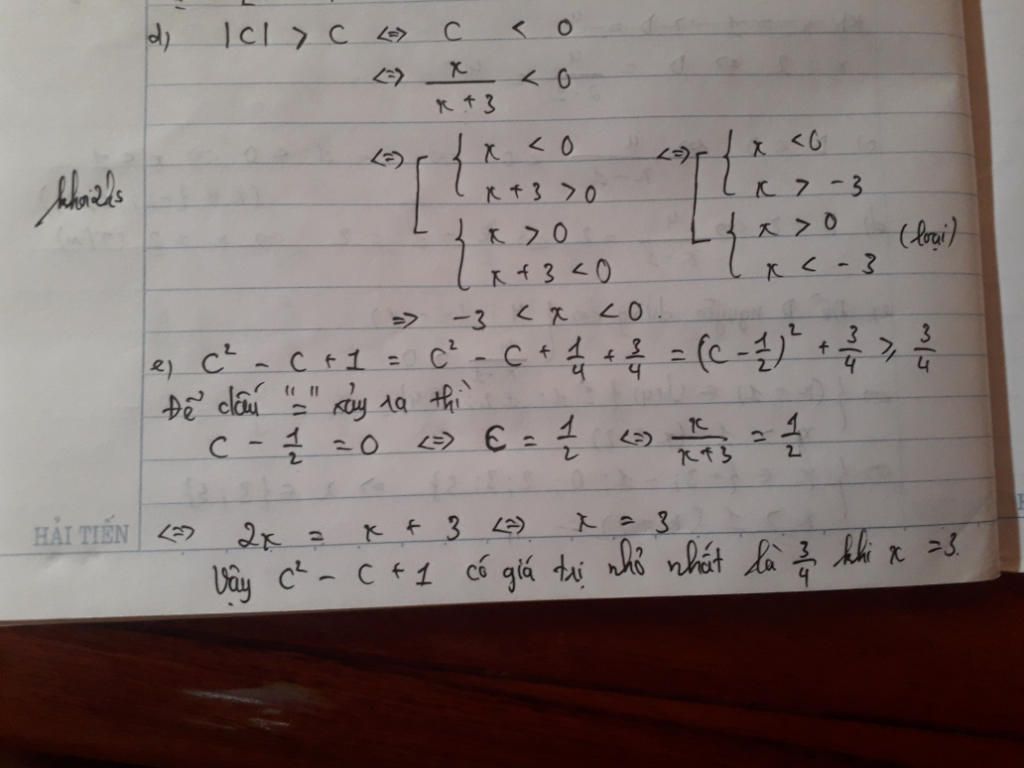 d) |C| > C <=> C < 0
<=> x/(x+3) < 0
<=> [ { x < 0 <=> [ { x < 0
x + 3 > 0 x > -3
khoi2k5
{ x > 0 { x > 0 (loại)
x + 3 < 0 x < -3
=> -3 < x < 0.
e) C² - C + 1 = C² - C + 1/4 + 3/4 = (C - 1/2)² + 3/4 ≥ 3/4
Để dấu "=" xảy ra thì
C - 1/2 = 0 <=> C = 1/2 <=> x/(x+3) = 1/2
HẢI TIẾN <=> 2x = x + 3 <=> x = 3
Vậy C² - C + 1 có giá trị nhỏ nhất là 3/4 khi x = 3.